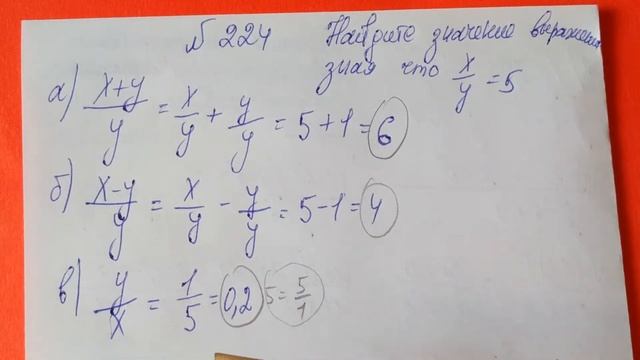 № 224 Найдите значение выражения
зная что x/y = 5
а) (x+y)/y = x/y + y/y = 5 + 1 = 6
б) (x-y)/y = x/y - y/y = 5 - 1 = 4
в) y/x = 1/5 = 0,2 5 = 5/1